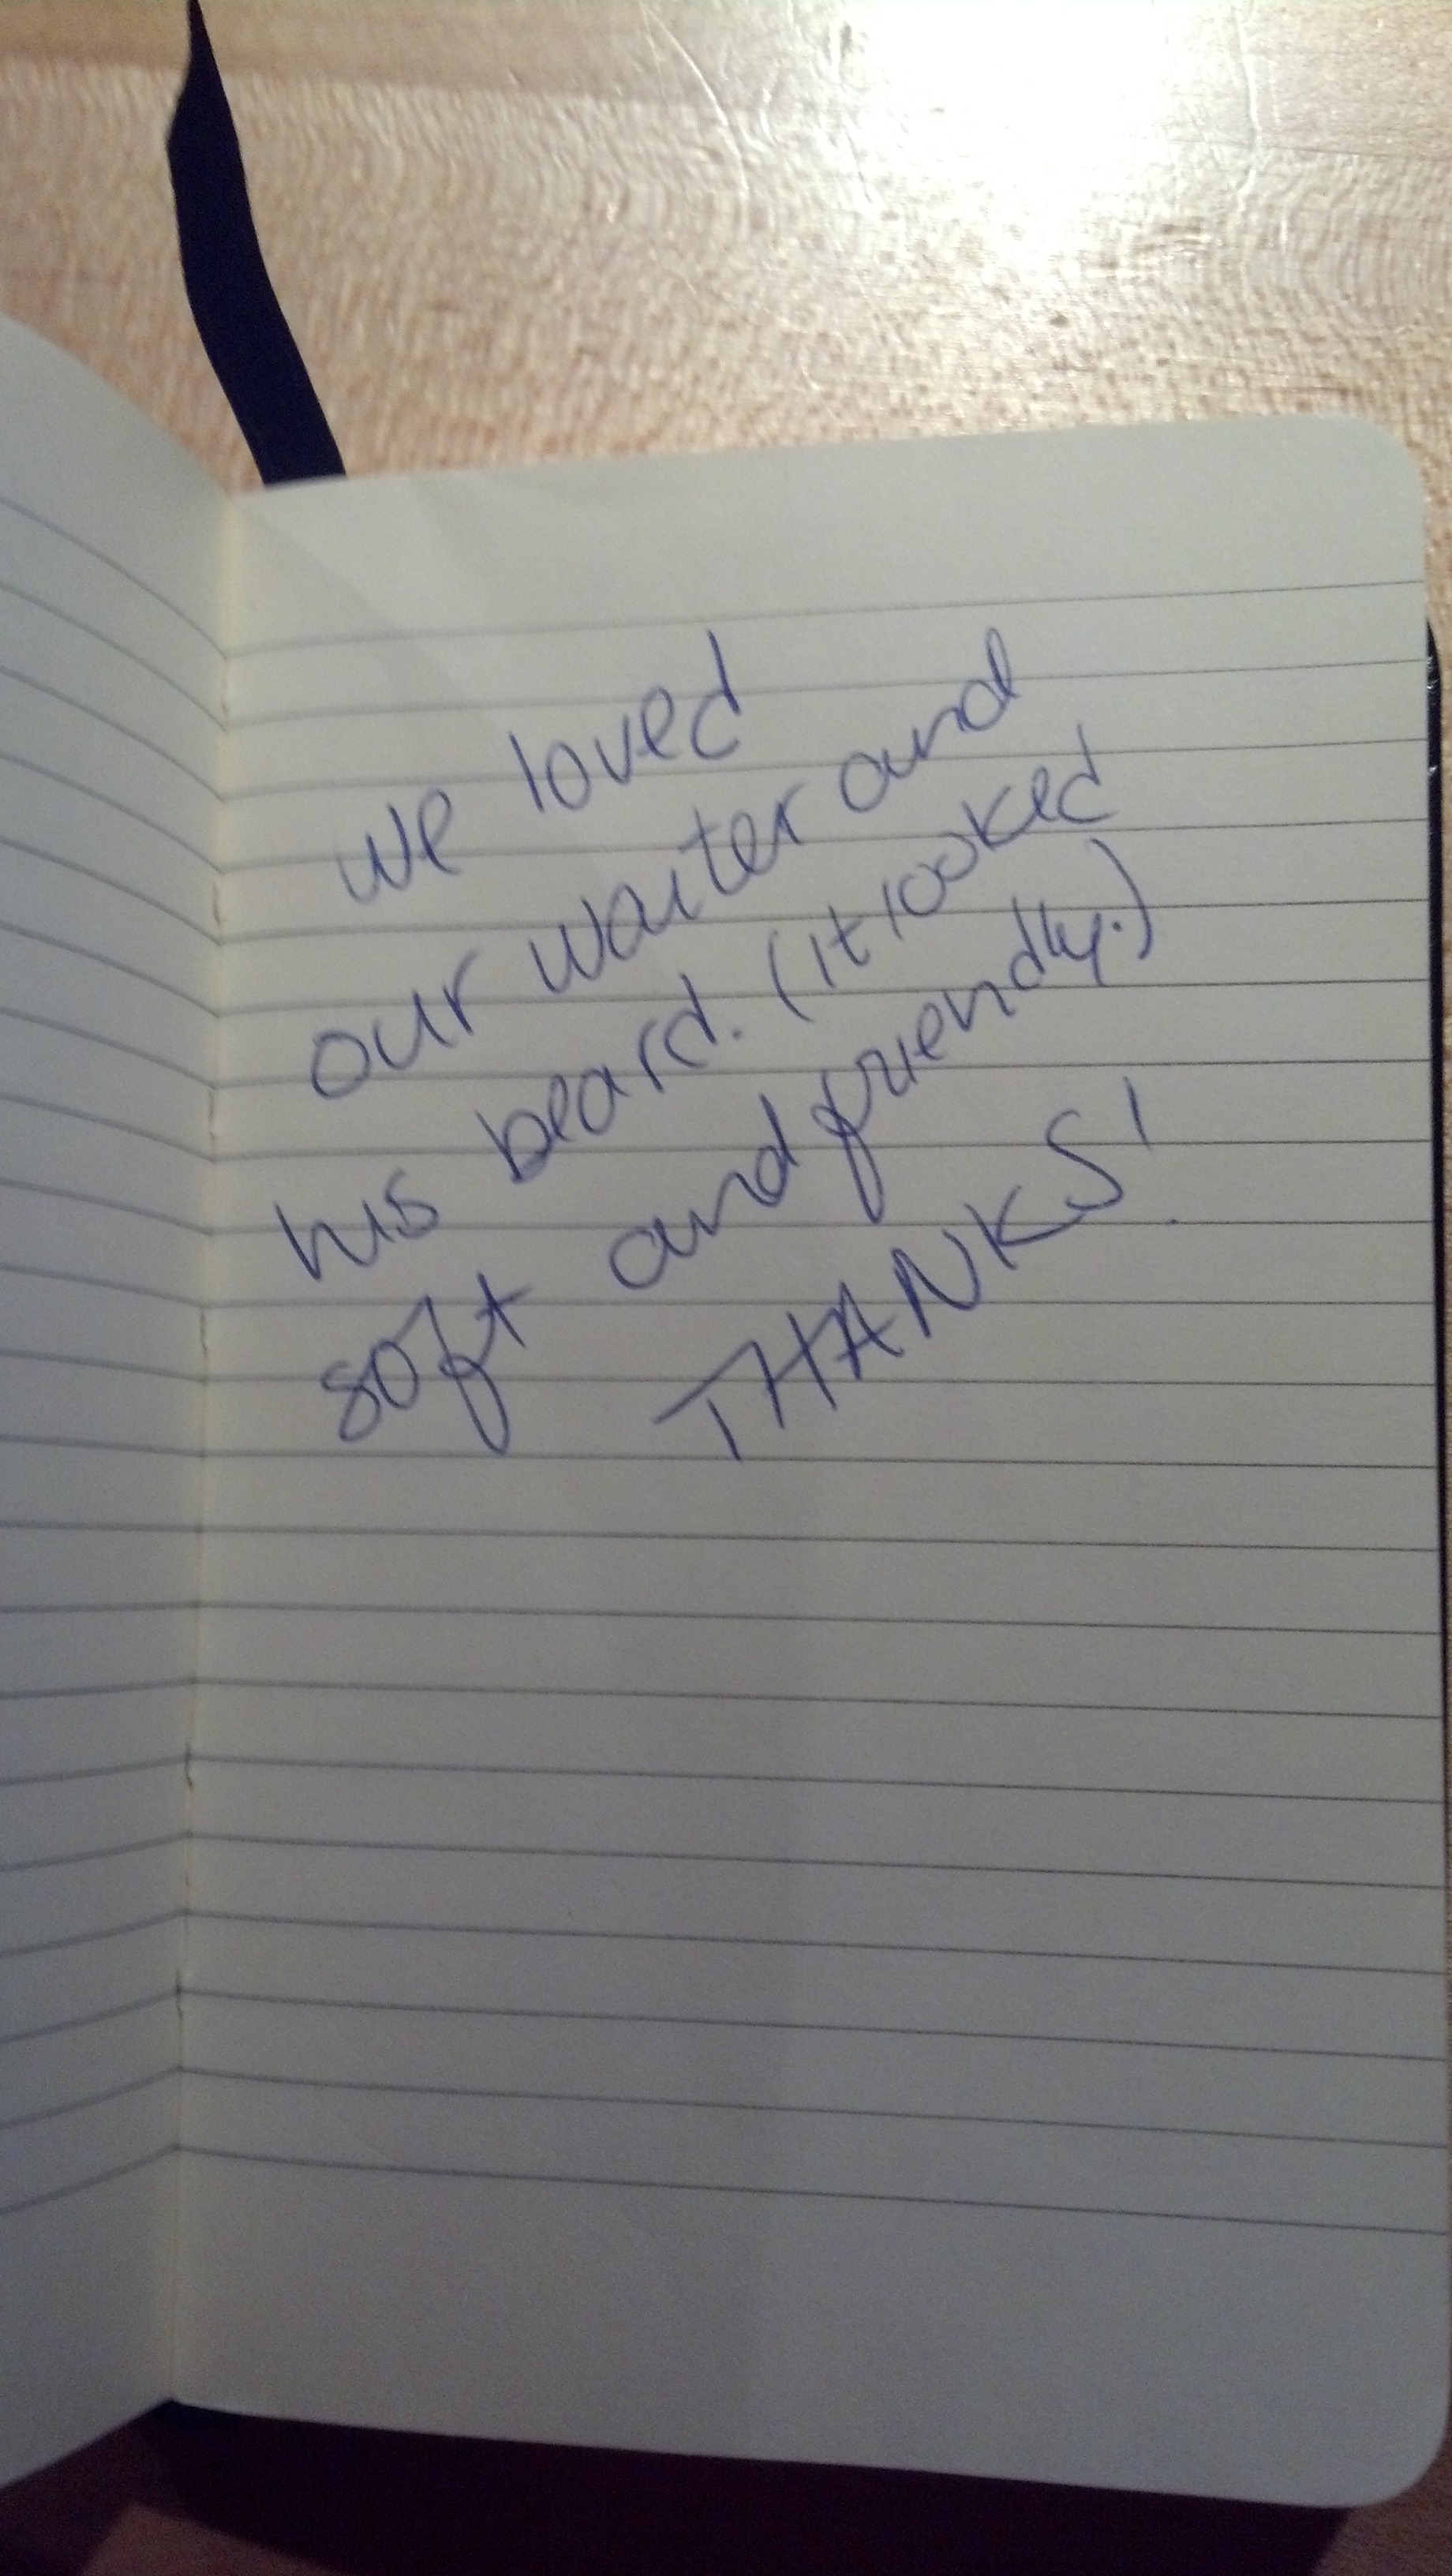 we loved
our waiter and
his beard. (it looked
soft and friendly.)
THANKS!